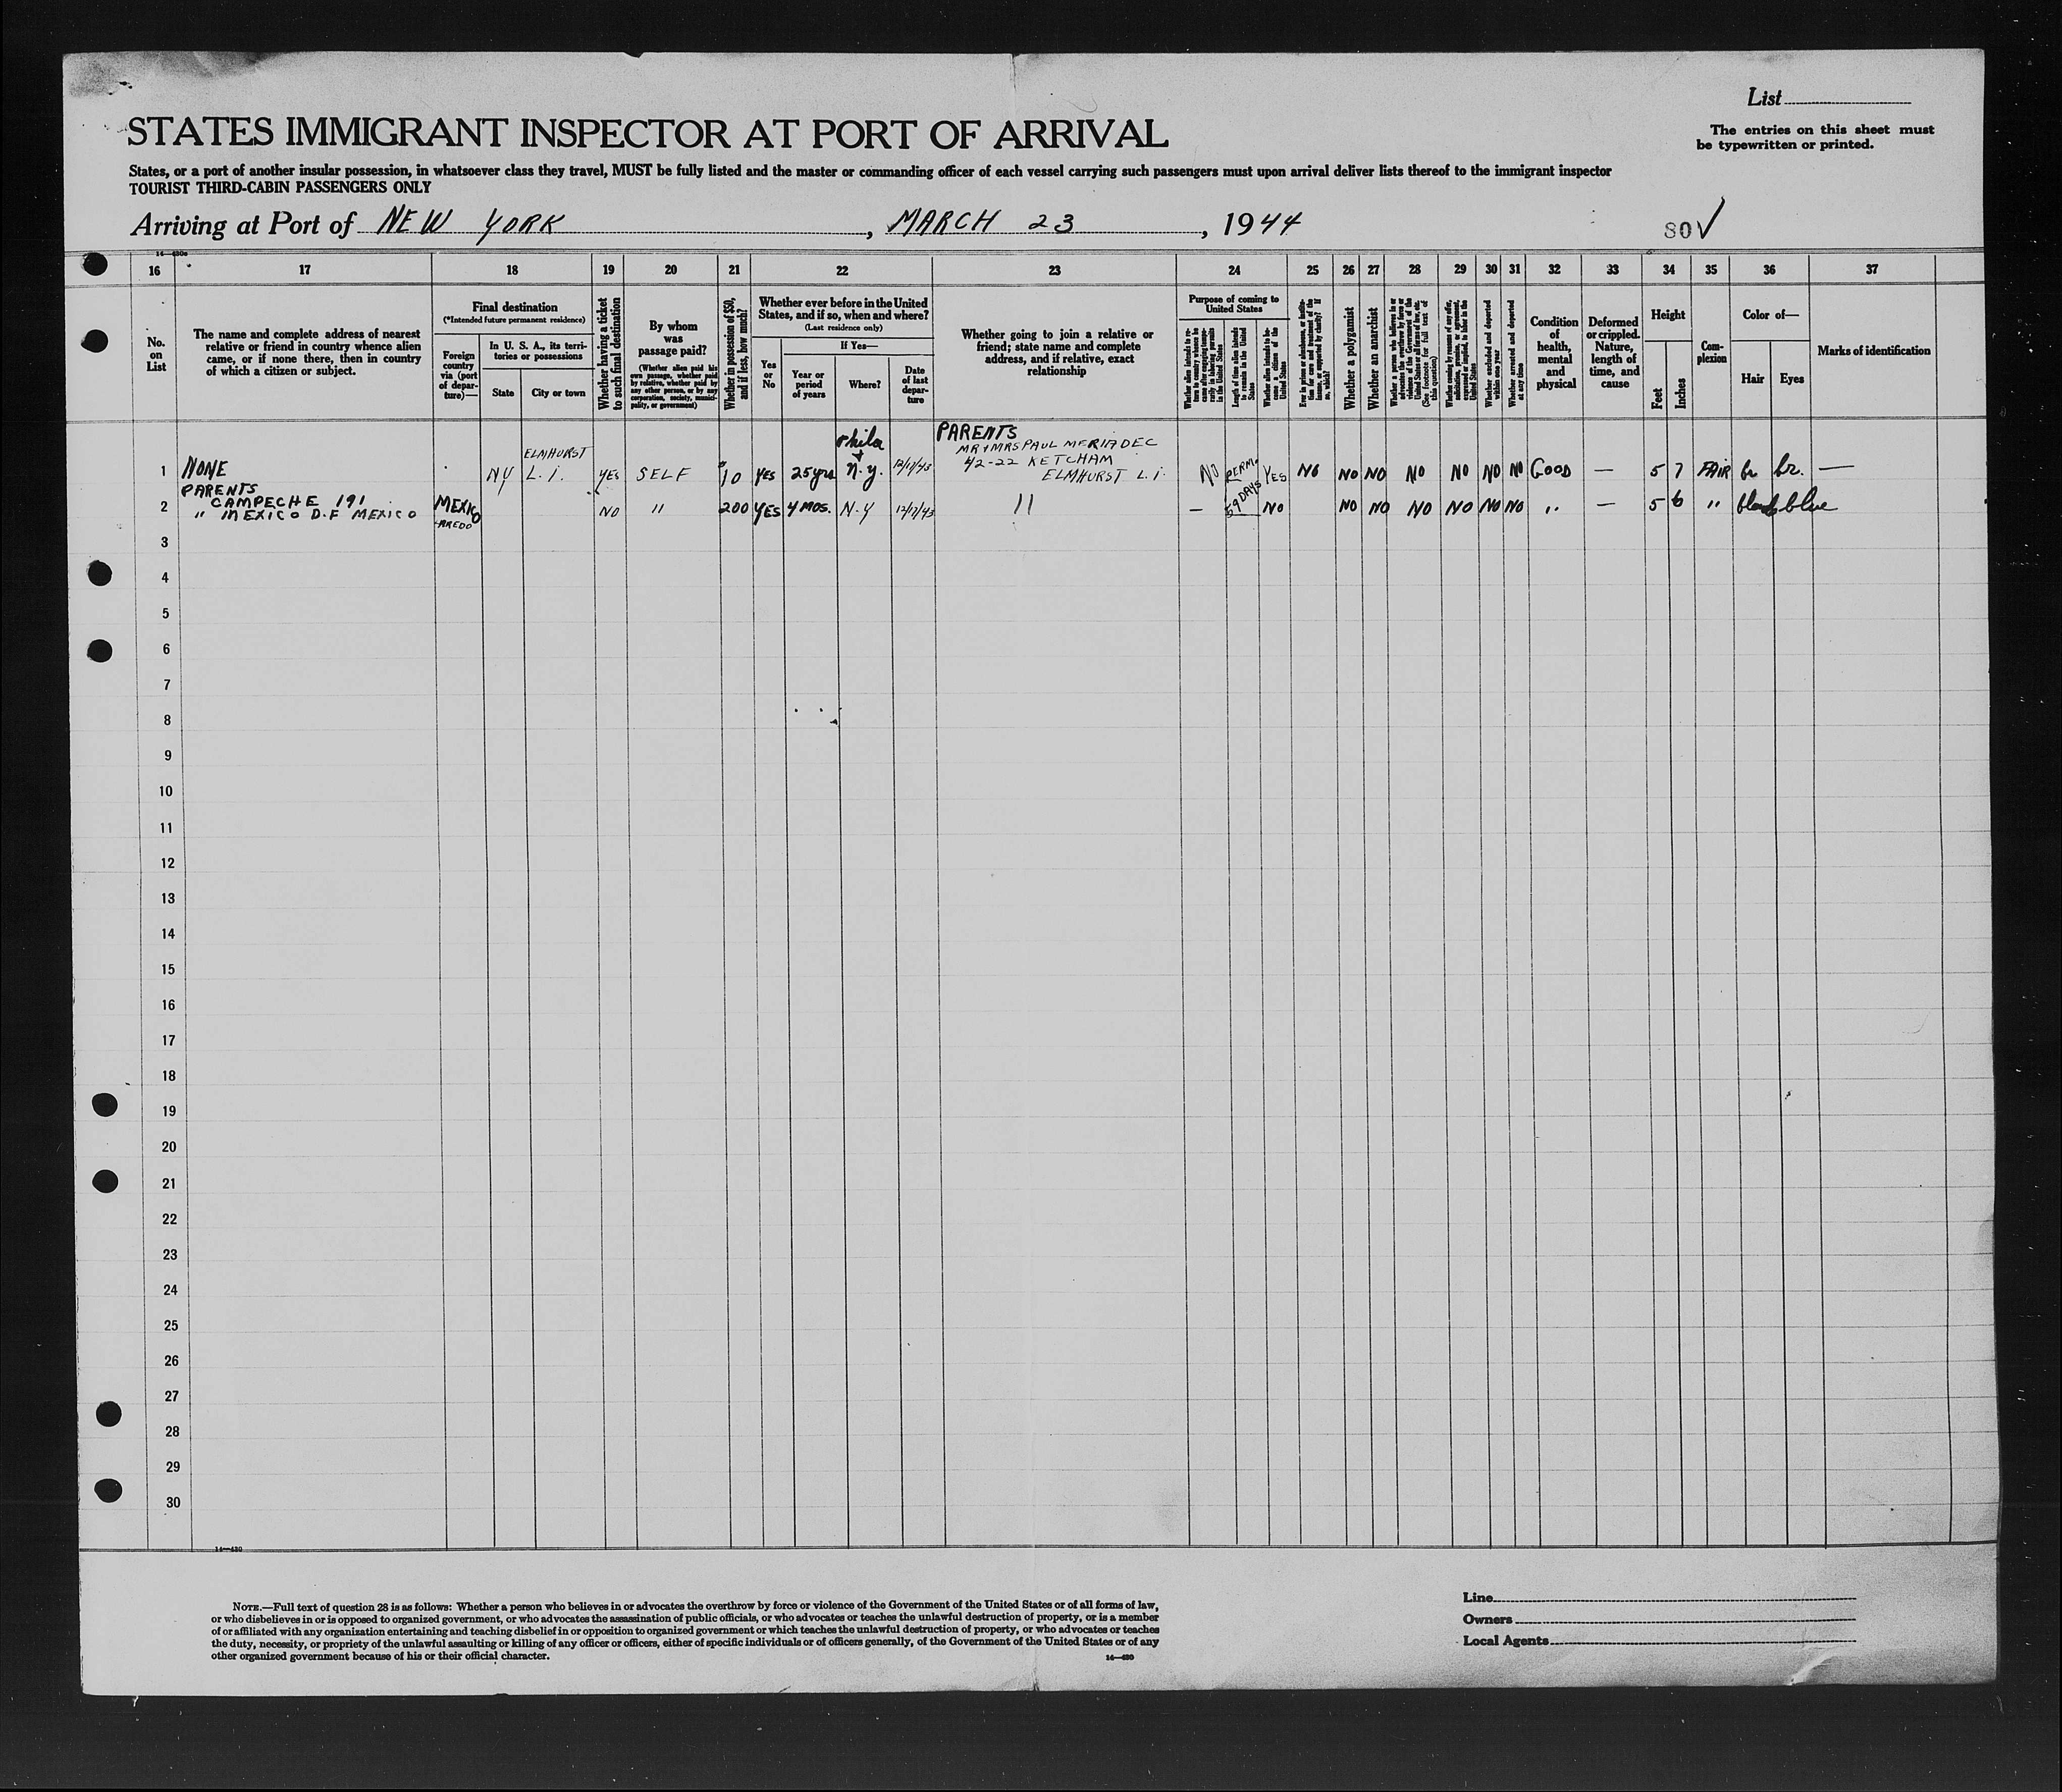 List
The entries on this sheet must
be typewritten or printed.
STATES IMMIGRANT INSPECTOR AT PORT OF ARRIVAL
States, or a port of another insular possession, in whatsoever class they travel, MUST be fully listed and the master or commanding officer of each vessel carrying such passengers must upon arrival deliver lists thereof to the immigrant inspector
TOURIST THIRD-CABIN PASSENGERS ONLY
Arriving at Port of NEW YORK, MARCH 23, 1944
80 ✓
16 17 18 19 20 21 22 23 24 25 26 27 28 29 30 31 32 33 34 35 36 37
No. on List
The name and complete address of nearest
relative or friend in country whence alien
came, or if none there, then in country
of which a citizen or subject.
Final destination
(*Intended future permanent residence)
Foreign country via (port of departure)—
In U. S. A., its territories or possessions
State
City or town
Whether having a ticket to such final destination
By whom was passage paid?
(Whether alien paid his own passage, whether paid by relative, whether paid by any other person, or by any corporation, society, municipality, or government)
Whether in possession of $50, and if less, how much?
Whether ever before in the United States, and if so, when and where?
(Last residence only)
Yes or No
If Yes—
Year or period of years
Where?
Date of last departure
Whether going to join a relative or
friend; state name and complete
address, and if relative, exact
relationship
Purpose of coming to United States
Length of time alien intends to remain in the United States
Whether alien intends to become a citizen of the United States
Whether a polygamist
Whether an anarchist
Whether excluded and deported within one year
Whether arrested and deported at any time
Condition of health, mental and physical
Deformed or crippled. Nature, length of time, and cause
Height
Feet
Inches
Complexion
Color of—
Hair
Eyes
Marks of identification
1 NONE NY ELMHURST L.I. YES SELF $10 YES 25 yrs Phila + N.y. PARENTS
MR + MRS PAUL
42-22 KETCHAM
ELMHURST L.I.
NO PERM. YES NO NO NO NO NO NO NO GOOD — 5 7 FAIR br br. —
2 PARENTS
CAMPECHE 191
" MEXICO D.F MEXICO
MEXICO NO " 200 YES 4 MOS. N.Y " — 59 DAYS NO NO NO NO NO NO NO " — 5 6 " blue
3
4
5
6
7
8
9
10
11
12
13
14
15
16
17
18
19
20
21
22
23
24
25
26
27
28
29
30
14—430
NOTE.—Full text of question 28 is as follows: Whether a person who believes in or advocates the overthrow by force or violence of the Government of the United States or of all forms of law,
or who disbelieves in or is opposed to organized government, or who advocates the assassination of public officials, or who advocates or teaches the unlawful destruction of property, or is a member
of or affiliated with any organization entertaining and teaching disbelief in or opposition to organized government or which teaches the unlawful destruction of property, or who advocates or teaches
the duty, necessity, or propriety of the unlawful assaulting or killing of any officer or officers, either of specific individuals or of officers generally, of the Government of the United States or of any
other organized government because of his or their official character.
14—430
Line
Owners
Local Agents